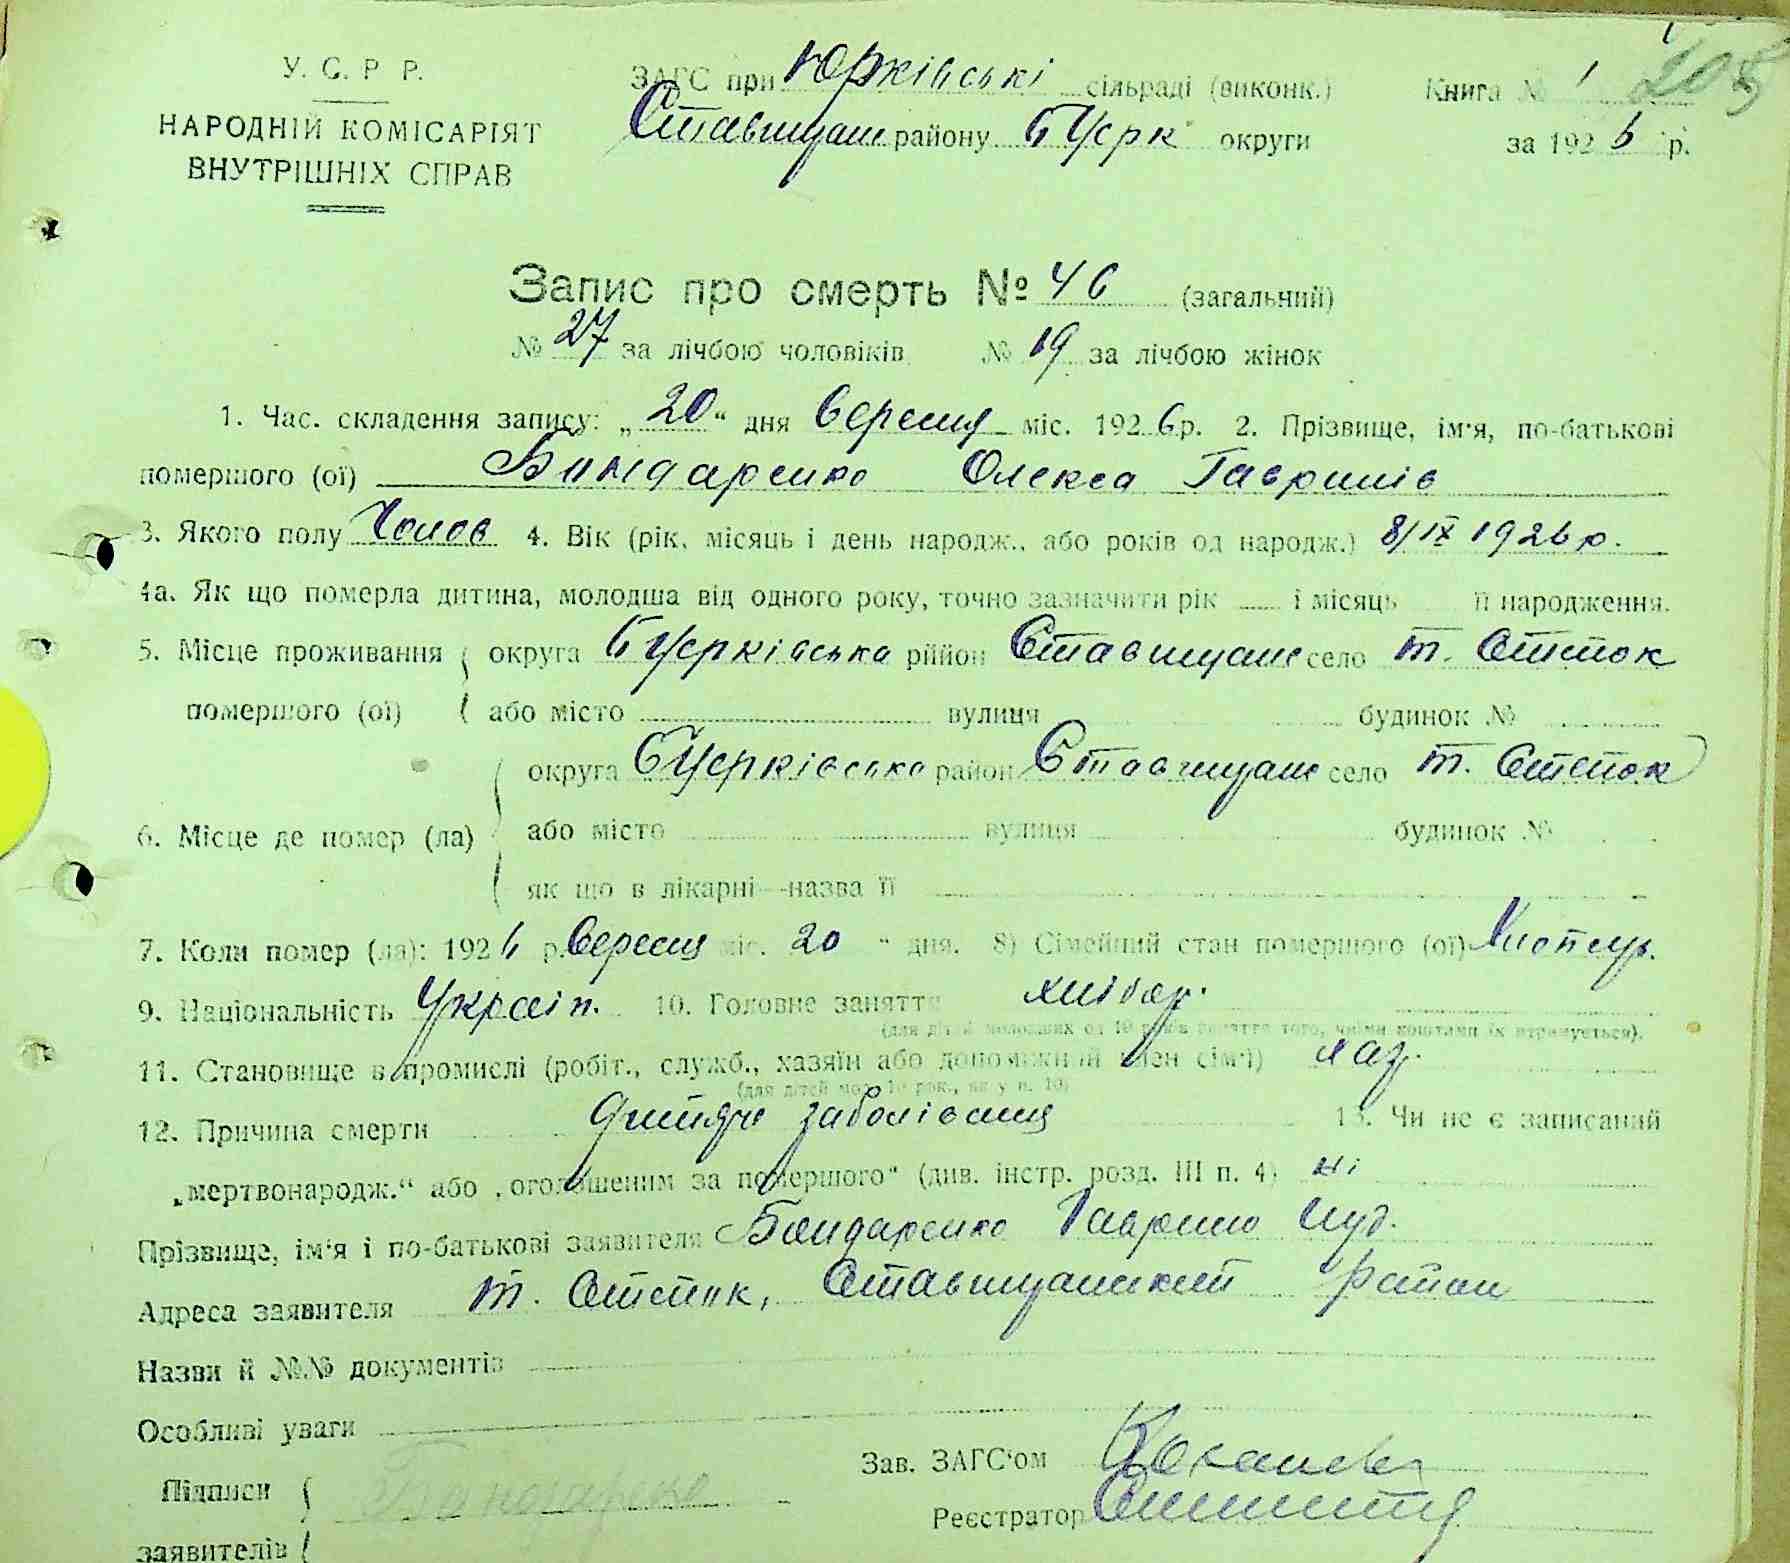 205
У. С. Р Р.
ЗАГС при Юрківські сільраді (виконк.) Книга № 1
НАРОДНІЙ КОМІСАРІЯТ
Ставищан району БЦерк округи за 1926 р.
ВНУТРІШНІХ СПРАВ
Запис про смерть № 46 (загальний)
№ 27 за лічбою чоловіків № 19 за лічбою жінок
1. Час. складення запису: „20“ дня Вересня міс. 1926 р. 2. Прізвище, ім'я, по-батькові
помершого (ої) Бондаренко Олекса Гаврилів
3. Якого полу Чолов 4. Вік (рік, місяць і день народж., або років од народж.) 8/IX 1926 р.
4а. Як що померла дитина, молодша від одного року, точно зазначити рік і місяць її народження.
5. Місце проживання округа БЦерківська район Ставищанс село т. Степок
помершого (ої) або місто вулиця будинок №
округа БЦерківська район Ставищанс село т. Степок
6. Місце де помер (ла) або місто вулиця будинок №
як що в лікарні—назва її
7. Коли помер (ла): 1926 р. Вересня міс. 20 " дня. 8) Сімейний стан помершого (ої)
9. Національність Україн. 10. Головне заняття хлібор.
(для дітей молодших од 10 років заняття того, чиїми коштами їх втримується).
11. Становище в промислі (робіт., служб., хазяїн або допоміжний член сім'ї) хаз.
(для дітей мол. 10 рок., як у п. 10)
12. Причина смерти Дитяче заболівання 13. Чи не є записаний
„мертвонародж.“ або „оголошеним за помершого“ (див. інстр. розд. III п. 4) ні
Прізвище, ім'я і по-батькові заявителя Бондаренко Гаврило
Адреса заявителя т. Степок, Ставищанський район
Назви й №№ документів
Особливі уваги
Зав. ЗАГС'ом
Підписи Бондаренко
Реєстратор
заявителів